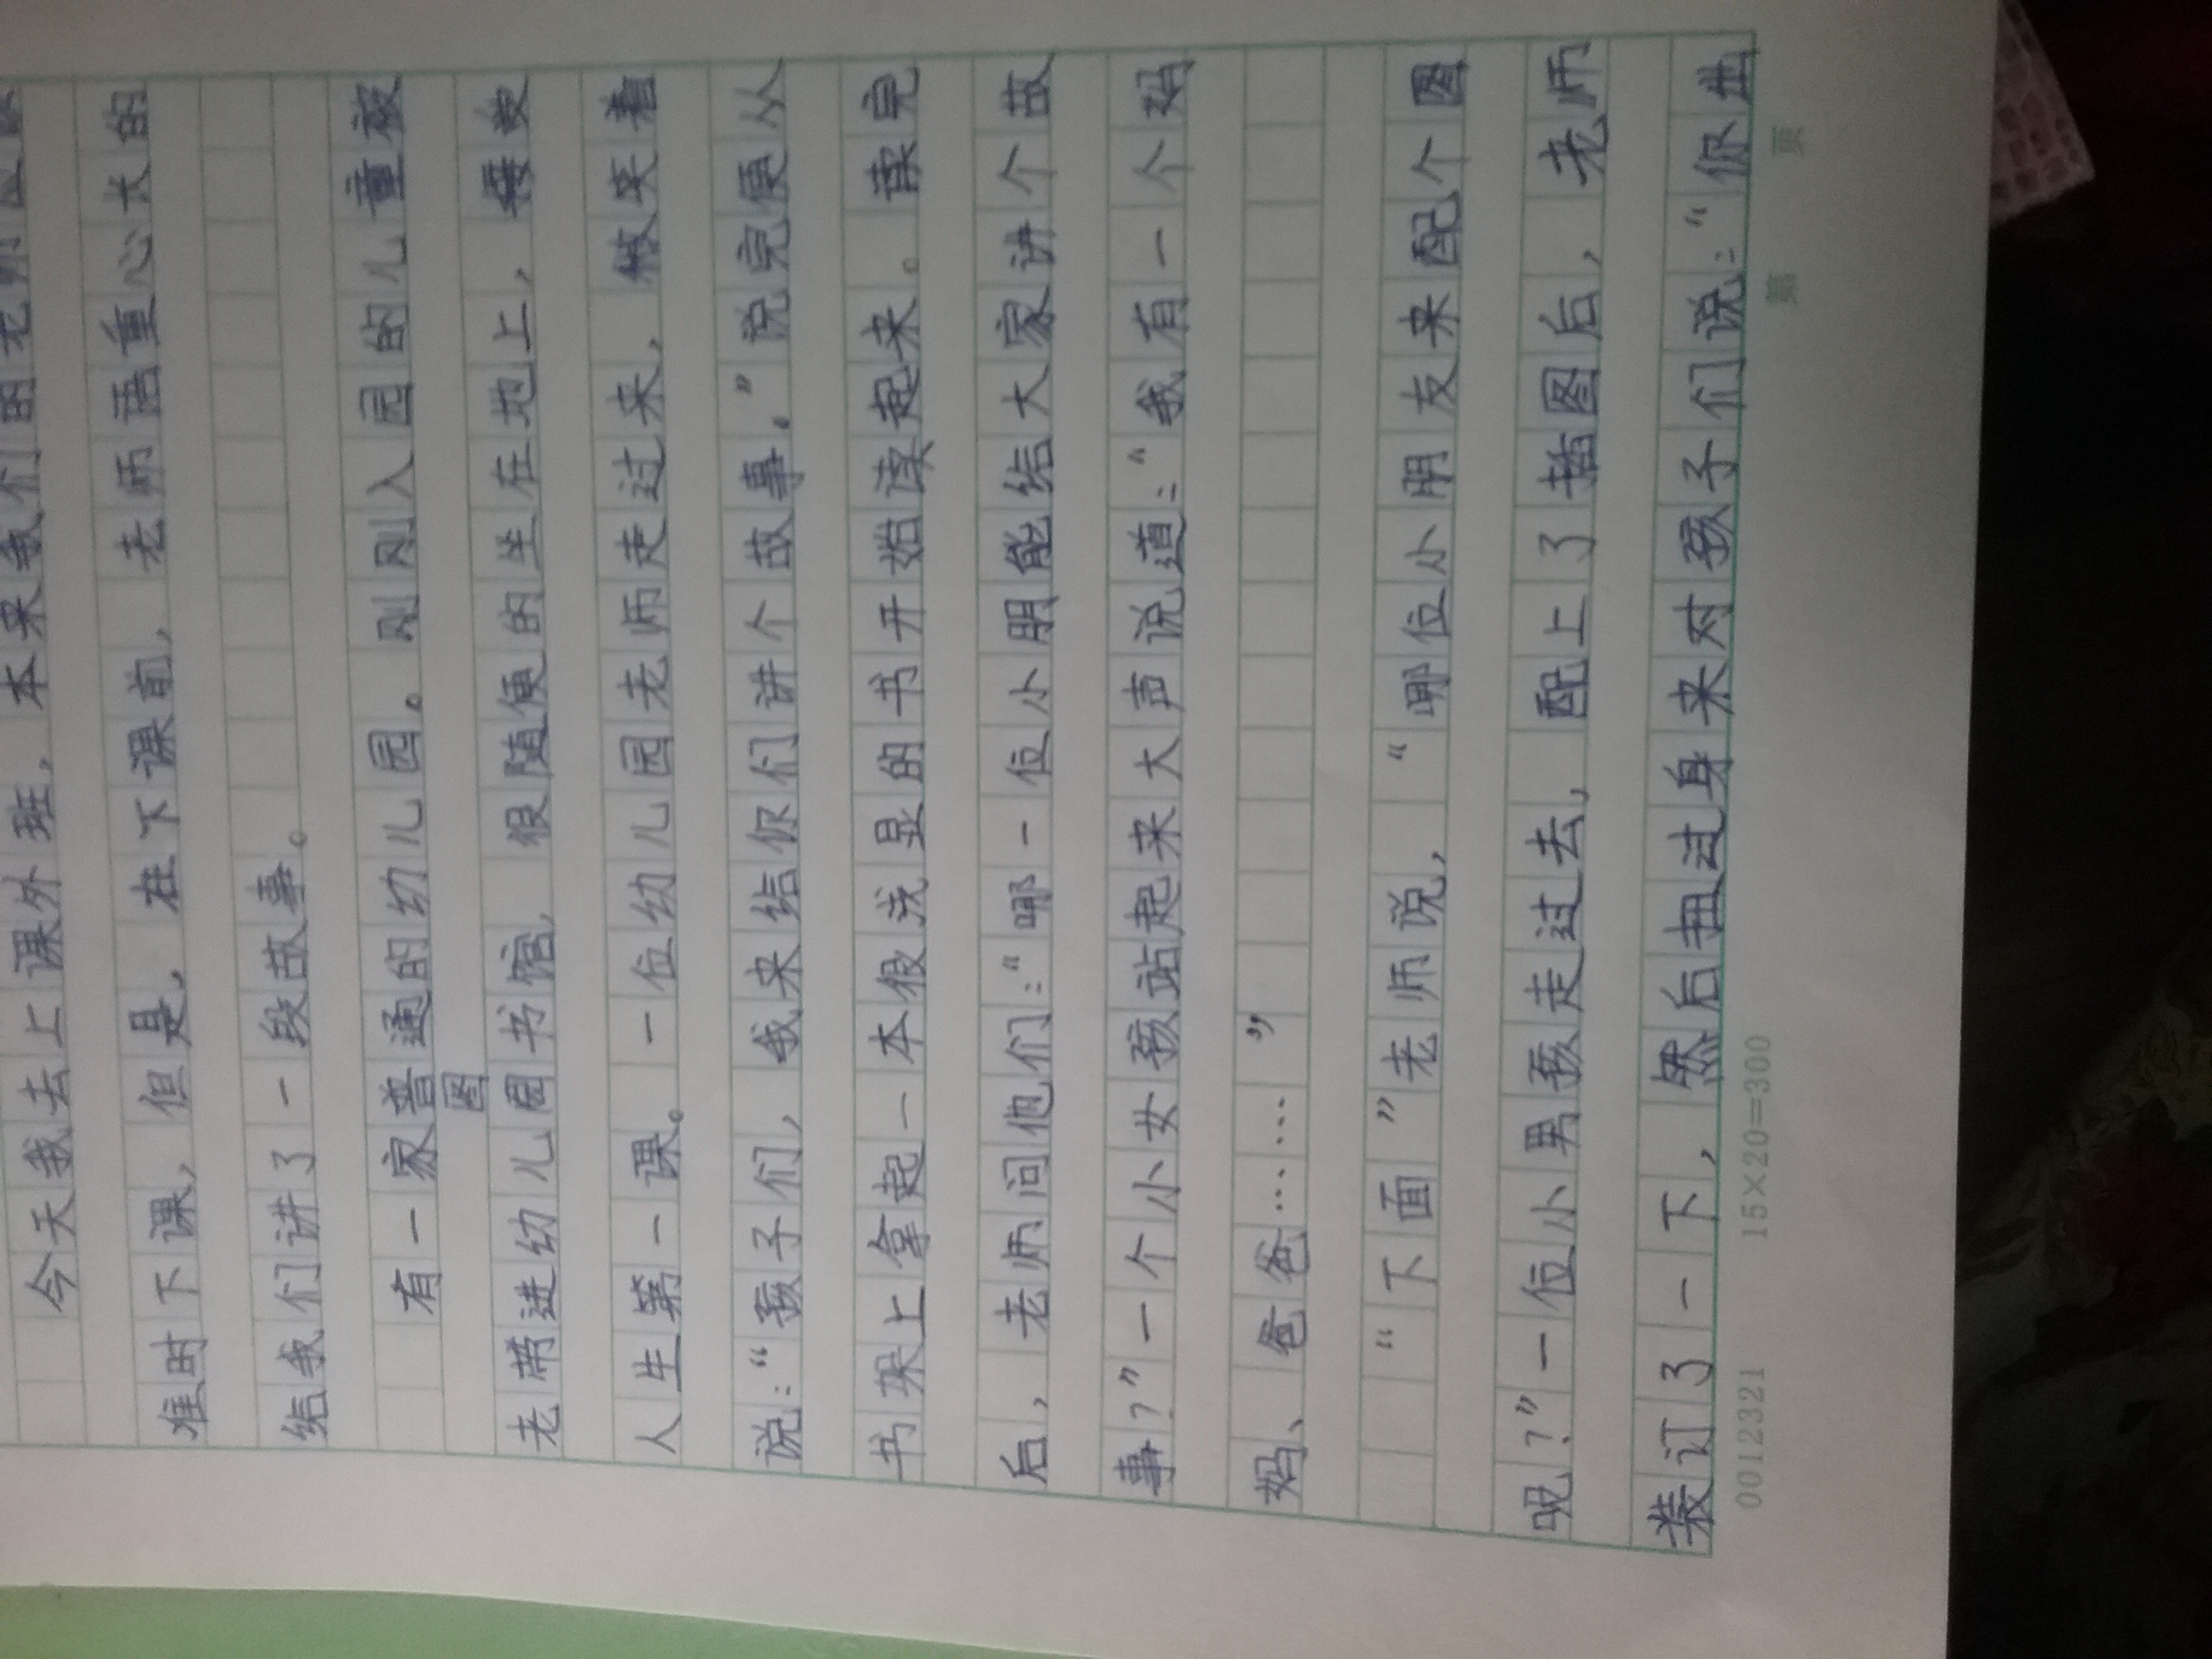 今天我去上课外班，本来我们的老师应该
准时下课，但是，在下课前，老师语重心长的
给我们讲了一段故事。
有一家普通的幼儿园。刚刚入园的儿童被
图
老带进幼儿园书馆，很随便的坐在地上，接受
人生第一课。一位幼儿园老师走过来，微笑着
说：“孩子们，我来给你们讲个故事。”说完便从
书架上拿起一本很浅显的书开始读起来。读完
后，老师问他们：“哪一位小朋能给大家讲个故
事？”一个小女孩站起来大声说道：“我有一个妈
妈、爸爸……”
“下面”老师说，“哪位小朋友来配个图
呢？”一位小男孩走过去，配上了插图后，老师
装订了一下，然后扭过身来对孩子们说：“你
0012321 15×20=300 第 页